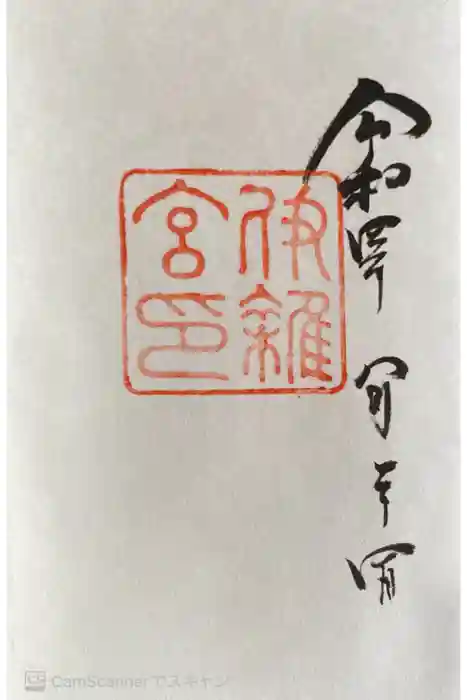 令和四年
伊雜
宮印
CS CamScannerでスキャン